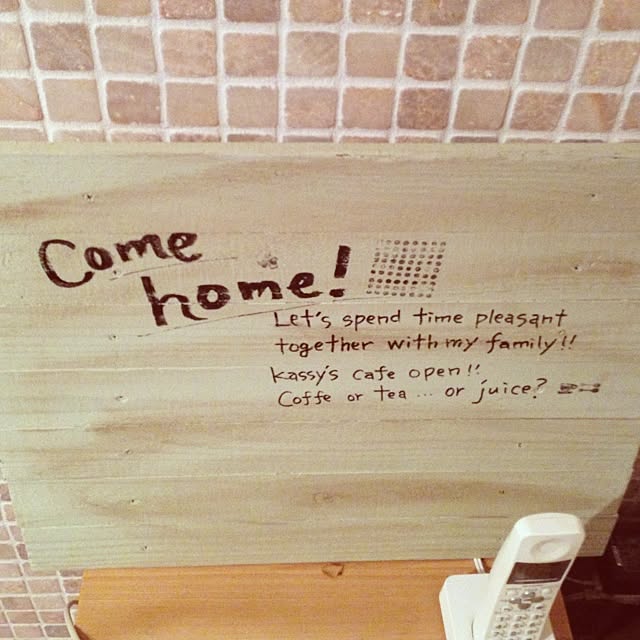 Come
home!
Let's spend time pleasant
together with my family!!
Kassy's cafe open!!
Coffe or tea ... or juice?